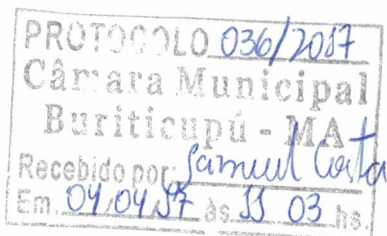 PROTOCOLO 036/2017
Câmara Municipal
Buriticupú - MA
Recebido por Samuel Costa
Em. 04/04/17 às 11 03 hs